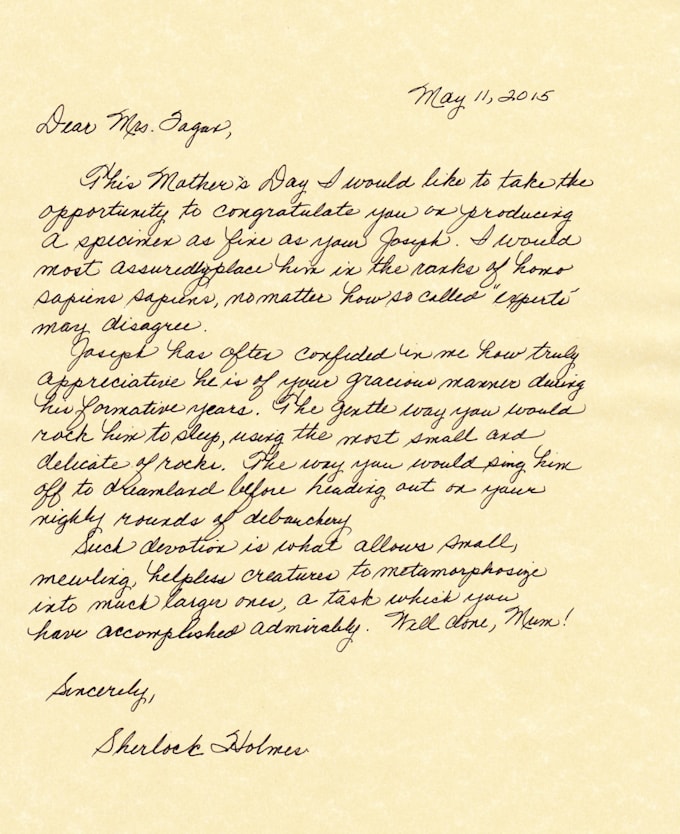 May 11, 2015
Dear Mrs. Fagan,
This Mother's Day I would like to take the
opportunity to congratulate you on producing
a specimen as fine as your Joseph. I would
most assuredly place him in the ranks of homo
sapiens sapiens, no matter how so called "experts"
may disagree.
Joseph has often confided in me how truly
appreciative he is of your gracious manner during
his formative years. The gentle way you would
rock him to sleep, using the most small and
delicate of rocks. The way you would sing him
off to dreamland before heading out on your
nighly rounds of debauchery
Such devotion is what allows small,
mewling, helpless creatures to metamorphosize
into much larger ones, a task which you
have accomplished admirably. Well done, Mum!
Sincerely,
Sherlock Holmes